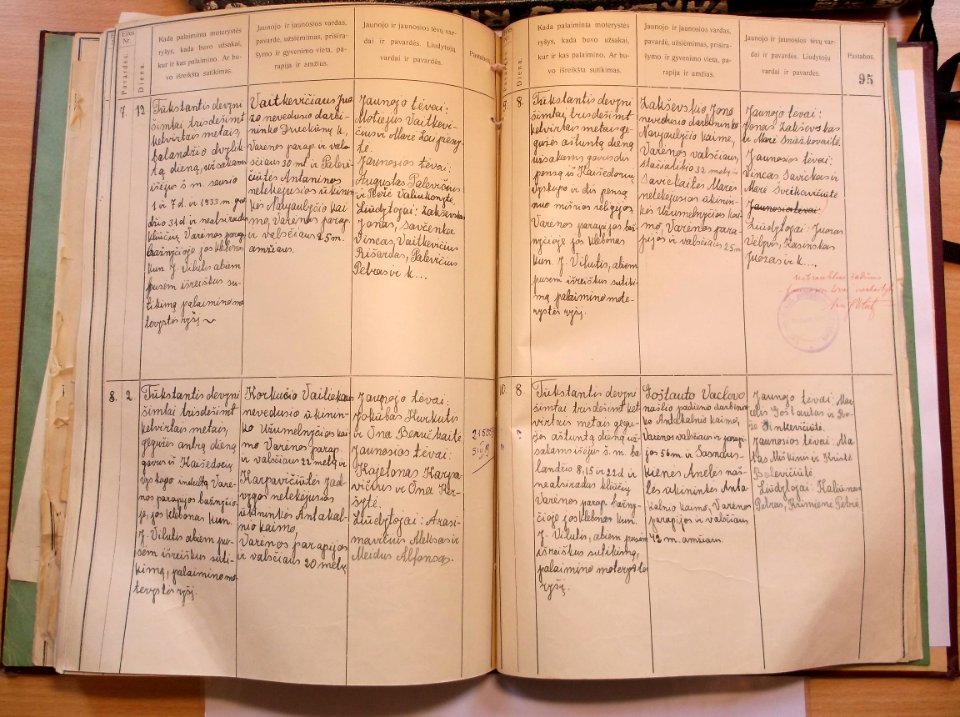 Eilės Nr.
Pavardės.
Diena.
Kada palaiminta moterystės
ryšys, kada buvo užsakai,
kur ir kas palaimino. Ar bu-
vo išreikšta sutikimas.
Jaunojo ir jaunosios vardas,
pavardė, užsiėmimas, prisira-
šymo ir gyvenimo vieta, pa-
rapija ir amžius.
Jaunojo ir jaunosios tėvų var-
dai ir pavardės. Liudytojų
vardai ir pavardės.
Pastabos.
7.
12
Tūkstantis devyni
šimtai trisdešimt
ketvirtais metais,
balandžio dvylik-
tą dieną, užsakams
išėjus š. m. sausio
1 ir 7 d. ir 1933 m. gruo-
džio 31 d. ir neatsiradus
kliūčių, Varėnos parap.
bažnyčioje jos klebonas
kun. J. Vilutis, abiem
pusėm išreiškus su-
tikimą, palaimino mo-
terystės ryšį.
Vaitkevičiaus Juo-
zo nevedusio darbi-
ninko
Varėnos parap. ir vals-
čiaus 30 mt. ir Palevi-
čiūtės Antaninos
netekėjusios ūkinin-
kės Naujaulyčio kai-
mo, Varėnos parap.
ir valsčiaus 25 m.
amžiaus.
Jaunojo tėvai:
Motiejus Vaitkevi-
čius ir Marė
Jaunosios tėvai:
Augustas Palevičius
ir
Liudytojai: Zakševskas
Jonas, Savčenka
Vincas, Vaitkevičius
Rišardas, Palevičius
Petras ir k....
8.
2
Tūkstantis devyni
šimtai trisdešimt
ketvirtais metais,
gegužės antrą dieną
gavus iš Kaišedorių
Vysk. indultą Varė-
nos parapijos bažnyčio-
je, jos klebonas kun.
J. Vilutis abiem pu-
sėm išreiškus suti-
kimą, palaimino mo-
terystės ryšį.
Korkučio Vaitiekaus
nevedusio ūkinin-
ko Užumelnyčios kai-
mo Varėnos parap.
ir valsčiaus 22 metų ir
Karpavičiūtės Jad-
vygos netekėjusios
ūkininkės Antakal-
nio kaimo,
Varėnos parapijos
ir valsčiaus 20 metų
Jaunojo tėvai:
Jokūbas Kurkutis
ir Ona
Jaunosios tėvai:
Kajetonas Karpa-
vičius ir Ona Ker-
šytė.
Liudytojai: Arasi-
mavičius Aleksas ir
Meidus Alfonsas.
Pavardės.
Diena.
Kada palaiminta moterystės
ryšys, kada buvo užsakai,
kur ir kas palaimino. Ar bu-
vo išreikšta sutikimas.
Jaunojo ir jaunosios vardas,
pavardė, užsiėmimas, prisira-
šymo ir gyvenimo vieta, pa-
rapija ir amžius.
Jaunojo ir jaunosios tėvų var-
dai ir pavardės. Liudytojų
vardai ir pavardės.
Pastabos.
95
9.
8.
Tūkstantis devyni
šimtai trisdešimt
ketvirtais metais ge-
gužės aštuntą dieną
užsakams gavus dis-
pensą iš Kaišedorių
Vyskupo ir dis pensą
mišrios religijos
Varėnos parapijos baž-
nyčioje jos klebonas
kun. J. Vilutis, abiem
pusėm išreiškus sutiki-
mą palaimino mote-
rystės ryšį.
Zakševsko Jono
nevedusio darbininko
Naujaulyčio kaimo,
Varėnos valsčiaus,
stačiatikio 32 metų ir
Savickaitės Marės
netekėjusios ūkinin-
kės Užumelnyčios kai-
mo, Varėnos para-
pijos ir valsčiaus 25 m
Jaunojo tėvai:
Jonas Zakševskas
ir Marė Sniežkovaitė.
Jaunosios tėvai:
Vincas Savickas ir
Marė Svetkavičiūtė
Jaunosios tėvai
Liudytojai: Juozas
Velpus, Kasinskas
Juozas ir k....
10.
8
Tūkstantis devyni
šimtai trisdešimt ket-
virtais metais gegu-
žės aštuntą dieną už-
sakams išėjus š. m. ba-
landžio 8, 15 ir 22 d. ir
neatsiradus kliūčių
Varėnos parap. baž-
nyčioje jos klebonas kun.
J. Vilutis, abiem pusėm
išreiškus sutikimą,
palaimino moterystės
ryšį.
Goštauto Vaclovo
našlio padienio darbininko
Antakalnio kaimo,
Varėnos valsčiaus ir parapi-
jos 56 m. ir Sasnaus-
kienės Anelės naš-
lės ūkininkės Anta-
kalnio kaimo, Varėnos
parapijos ir valsčiaus
42 m. amžiaus.
Jaunojo tėvai:
Goštautas ir
Sinkevičiūtė.
Jaunosios tėvai: Ma-
tas Miškinis ir Kristė
Balevičiūtė
Liudytojai: Kaliūnas
Petras, Ramienė Petrė.